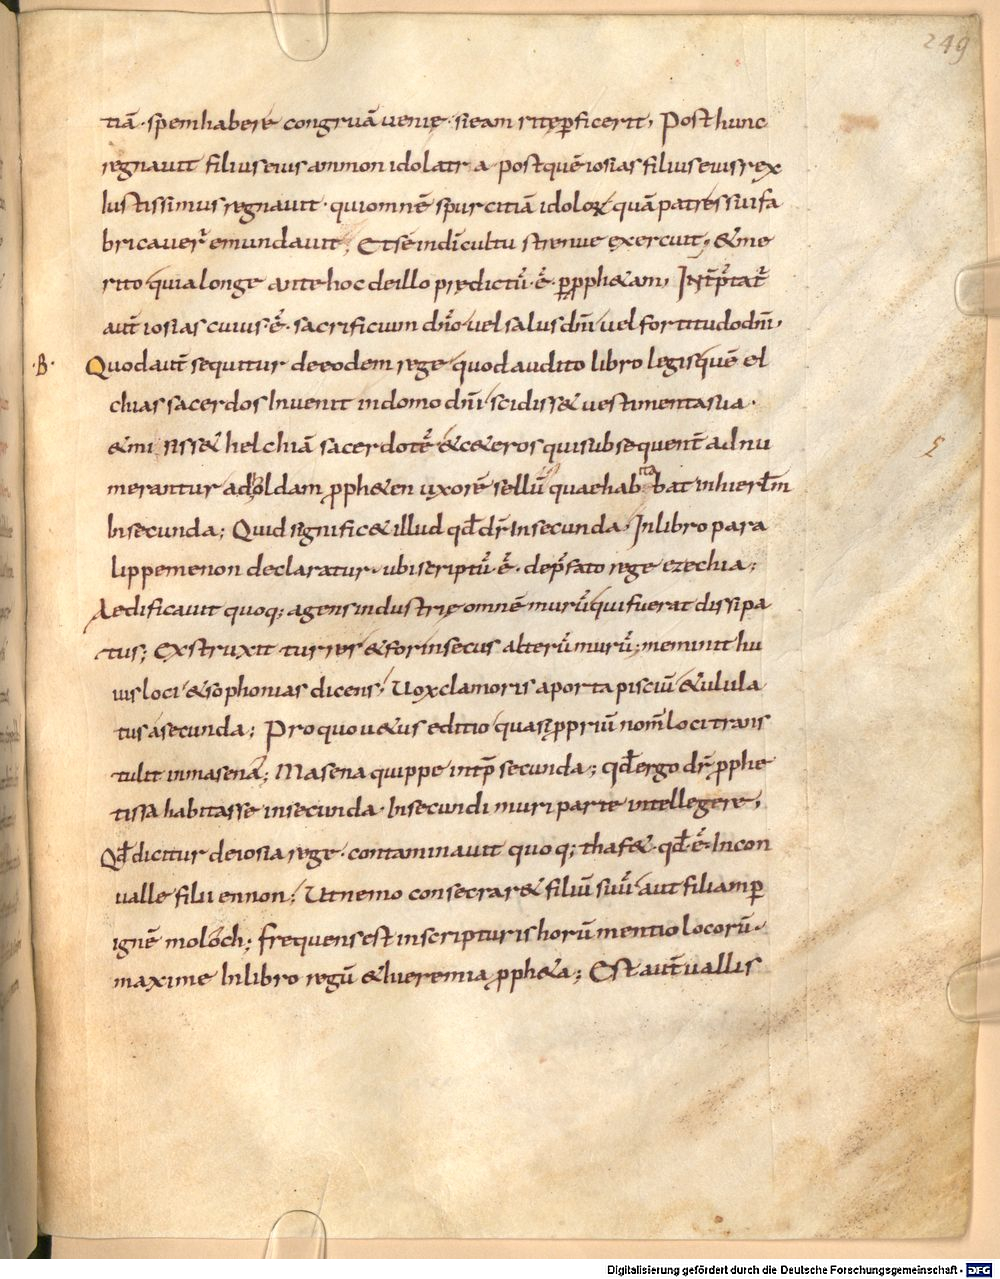 249
tiā · spem habere congruā uenię · si eam ritę ꝑficerit, Post hunc
regnauit filius eius ammon idolatra · postquē iosias filius eius rex
Iustissimus regnauit · qui omnē spurcitiā idoloꝝ quā patres sui fa
bricauer̄ emundauit; Et sē in dī cultu strenue exercuit; & me
rito quia longe ante hoc de illo prędictū · ē · ꝑ ꝓph&am, Int̄p̄tat̄
aut̄ iosias cuius ē · sacrificium dn̄o uel salus dn̄i uel fortitudo dn̄i,
·B· Quod aut̄ sequitur de eodem rege quod audito libro legis quē el
chias sacerdos Inuenit in domo dn̄i scidiss& uestimenta sua ·
& misiss& helchiā sacerdotē & c&eros qui subsequent̄ ad nu
merantur ad oldam ꝓph&en uxorē sellū quae habitabat in hierl̄m
In secunda; Quid signific& illud qd̄ dr̄ In secunda · In libro para
lippemenon declaratur · ubi scriptū · ē · de p̄fato rege ezechia;
Aedificauit quoq; agens industrię omnē murū qui fuerat dissipa
tus; Exstruxit turres & forinsecus alterū murū; meminit hu
ius loci & sophonias dicens, Uox clamoris a porta pisciū & ulula
tus a secunda; Pro quo u&us editio quasi ꝓpriū nom̄ loci trans
tulit in masena; Masena quippe int̄p̄ secunda; qd̄ ergo dr̄ ꝓphe
tissa habitasse in secunda · In secundi muri parte intellegere,
Qd̄ dicitur de iosia rege · contaminauit quoq; thaf& · qd̄ · ē · In con
ualle filii ennon; Ut nemo consecrar& filiū suū aut filiam ꝑ
ignē moloch; frequens est in scripturis horū mentio locorū ·
maxime In libro regū & hieremia ꝓph&a; Est aut̄ uallis
Digitalisierung gefördert durch die Deutsche Forschungsgemeinschaft - DFG